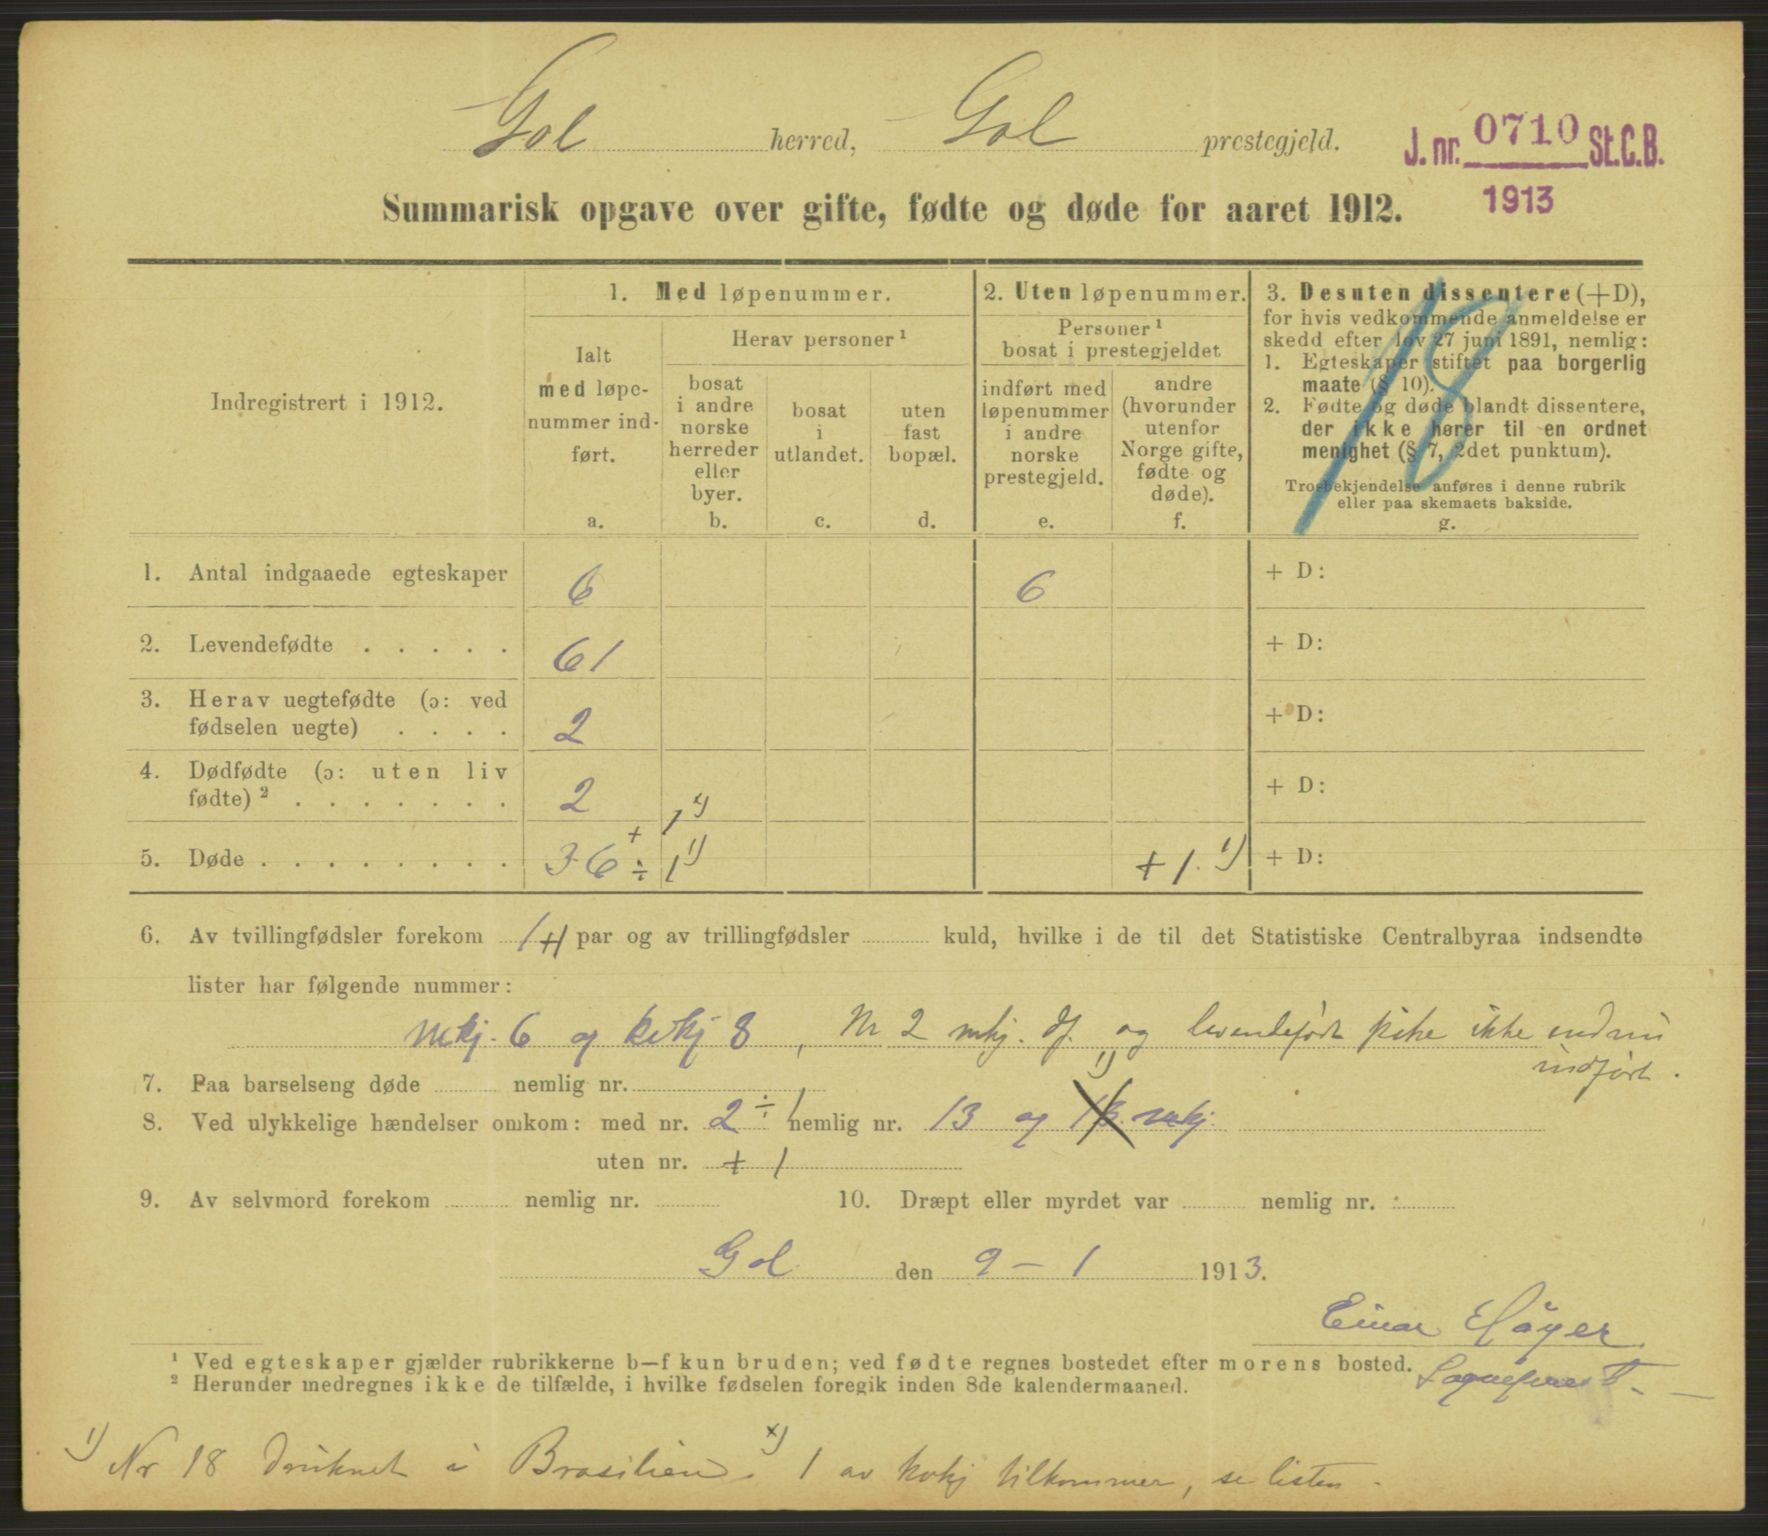 Gol herred, Gol prestegjeld.
J. nr. 0710 St. C. B.
1913
Summarisk opgave over gifte, fødte og døde for aaret 1912.
Indregistrert i 1912.
1. Med løpenummer.
Ialt
med løpe-
nummer ind-
ført.
a.
Herav personer ¹
bosat
i andre
norske
herreder
eller
byer.
b.
bosat
i
utlandet.
c.
uten
fast
bopæl.
d.
2. Uten løpenummer.
Personer ¹
bosat i prestegjeldet
indført med
løpenummer
i andre
norske
prestegjeld.
e.
andre
(hvorunder
utenfor
Norge gifte,
fødte og
døde).
f.
3. Desuten dissentere (+D),
for hvis vedkommende anmeldelse er
skedd efter lov 27 juni 1891, nemlig:
1. Egteskaper stiftet paa borgerlig
maate (§ 10).
2. Fødte og døde blandt dissentere,
der ikke hører til en ordnet
menighet (§ 7, 2det punktum).
Trosbekjendelse anføres i denne rubrik
eller paa skemaets bakside.
g.
18
1. Antal indgaaede egteskaper 6 6 + D:
2. Levendefødte . . . . . 61 + D:
3. Herav uegtefødte (ɔ: ved
fødselen uegte) . . . . 2 + D:
4. Dødfødte (ɔ: uten liv
fødte) ² . . . . . . . 2 + D:
+ 1 x)
5. Døde . . . . . . . . 36 ÷ 1 1) + 1. 1) + D:
6. Av tvillingfødsler forekom 1 +1 par og av trillingfødsler kuld, hvilke i de til det Statistiske Centralbyraa indsendte
lister har følgende nummer:
mkj. 6 og kvkj 8, Nr 2 mkj. df. og levendefødt pike ikke endnu
indført.
7. Paa barselseng døde nemlig nr.
8. Ved ulykkelige hændelser omkom: med nr. 2 ÷ 1 nemlig nr. 13 og 18 1) mkj.
uten nr. + 1
9. Av selvmord forekom nemlig nr. 10. Dræpt eller myrdet var nemlig nr.
Gol den 9 – 1 1913.
Einar Høyer
Sogneprest.
¹ Ved egteskaper gjælder rubrikkerne b—f kun bruden; ved fødte regnes bostedet efter morens bosted.
² Herunder medregnes ikke de tilfælde, i hvilke fødselen foregik inden 8de kalendermaaned.
1) Nr 18 druknet i Brasilien. x) 1 av kvkj tilkommer, se listen.